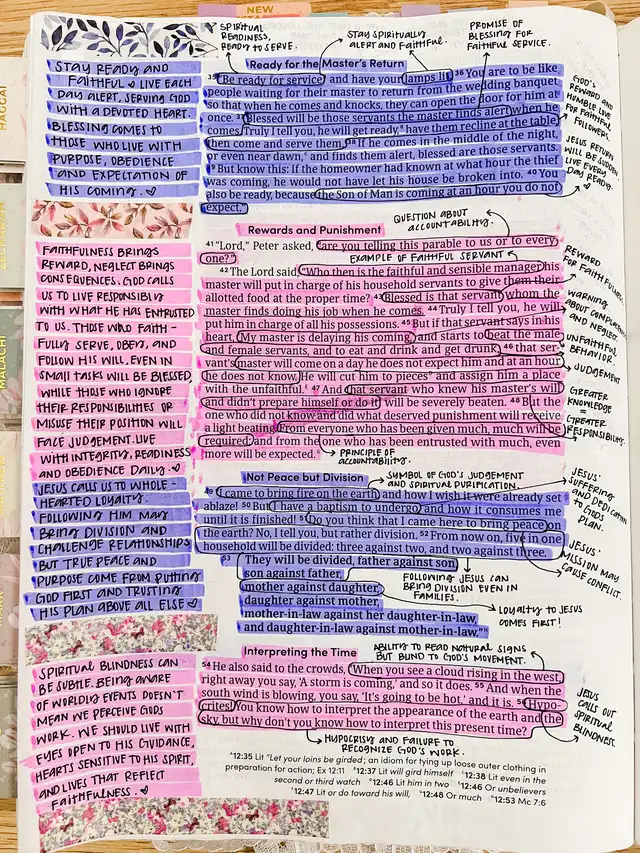 SPIRITUAL
READINESS,
READY TO SERVE.
STAY SPIRITUALLY
ALERT AND FAITHFUL.
PROMISE OF
BLESSING FOR
FAITHFUL SERVICE.
STAY READY AND
FAITHFUL ♡ LIVE EACH
DAY ALERT, SERVING GOD
WITH A DEVOTED HEART.
BLESSING COMES TO
THOSE WHO LIVE WITH
PURPOSE, OBEDIENCE
AND EXPECTATION OF
HIS COMING. ♡
Ready for the Master's Return
35 "Be ready for service and have your lamps lit. 36 You are to be like
people waiting for their master to return from the wedding banquet
so that when he comes and knocks, they can open the door for him at
once. 37 Blessed will be those servants the master finds alert when he
comes. Truly I tell you, he will get ready, have them recline at the table,
then come and serve them. 38 If he comes in the middle of the night,
or even near dawn, and finds them alert, blessed are those servants.
39 But know this: If the homeowner had known at what hour the thief
was coming, he would not have let his house be broken into. 40 You
also be ready, because the Son of Man is coming at an hour you do not
expect."
GOD'S
REWARD AND
HUMBLE LOVE
FOR FAITHFUL
FOLLOWERS.
JESUS RETURN
WILL BE SUDDEN.
LIVE EVERY
DAY READY.
FAITHFULNESS BRINGS
REWARD, NEGLECT BRINGS
CONSEQUENCES. GOD CALLS
US TO LIVE RESPONSIBLY
WITH WHAT HE HAS ENTRUSTED
TO US. THOSE WHO FAITH-
FULLY SERVE, OBEY, AND
FOLLOW HIS WILL, EVEN IN
SMALL TASKS WILL BE BLESSED,
WHILE THOSE WHO IGNORE
THEIR RESPONSIBILITIES OR
MISUSE THEIR POSITION WILL
FACE JUDGEMENT. LIVE
WITH INTEGRITY, READINESS
AND OBEDIENCE DAILY. ♡
Rewards and Punishment
QUESTION ABOUT
ACCOUNTABILITY.
41 "Lord," Peter asked, "are you telling this parable to us or to every-
one?"
EXAMPLE OF FAITHFUL SERVANT
42 The Lord said, "Who then is the faithful and sensible manager his
master will put in charge of his household servants to give them their
allotted food at the proper time? 43 Blessed is that servant whom the
master finds doing his job when he comes. 44 Truly I tell you, he will
put him in charge of all his possessions. 45 But if that servant says in his
heart, 'My master is delaying his coming,' and starts to beat the male
and female servants, and to eat and drink and get drunk, 46 that ser-
vant's master will come on a day he does not expect him and at an hour
he does not know. He will cut him to pieces and assign him a place
with the unfaithful. 47 And that servant who knew his master's will
and didn't prepare himself or do it will be severely beaten. 48 But the
one who did not know and did what deserved punishment will receive
a light beating. From everyone who has been given much, much will be
required; and from the one who has been entrusted with much, even
more will be expected.
PRINCIPLE OF
ACCOUNTABILITY.
REWARD
FOR FAITHFULNESS.
WARNING
ABOUT COMPLACENCY
AND NEGLECT.
UNFAITHFUL
BEHAVIOR.
JUDGEMENT
GREATER
KNOWLEDGE
=
GREATER
RESPONSIBILITY.
JESUS CALLS US TO WHOLE-
HEARTED LOYALTY.
FOLLOWING HIM MAY
BRING DIVISION AND
CHALLENGE RELATIONSHIPS
BUT TRUE PEACE AND
PURPOSE COME FROM PUTTING
GOD FIRST AND TRUSTING
HIS PLAN ABOVE ALL ELSE ♡
Not Peace but Division
SYMBOL OF GOD'S JUDGEMENT
AND SPIRITUAL PURIFICATION.
49 "I came to bring fire on the earth, and how I wish it were already set
ablaze! 50 But I have a baptism to undergo, and how it consumes me
until it is finished! 51 Do you think that I came here to bring peace on
the earth? No, I tell you, but rather division. 52 From now on, five in one
household will be divided: three against two, and two against three.
53 They will be divided, father against son,
son against father,
mother against daughter,
daughter against mother,
mother-in-law against her daughter-in-law,
and daughter-in-law against mother-in-law."
JESUS'
SUFFERING
AND DEDICATION
TO GOD'S
PLAN.
JESUS'
MISSION MAY
CAUSE CONFLICT.
FOLLOWING JESUS CAN
BRING DIVISION EVEN IN
FAMILIES.
LOYALTY TO JESUS
COMES FIRST!
SPIRITUAL BLINDNESS CAN
BE SUBTLE. BEING AWARE
OF WORLDLY EVENTS DOESN'T
MEAN WE PERCEIVE GODS
WORK. WE SHOULD LIVE WITH
EYES OPEN TO HIS GUIDANCE,
HEARTS SENSITIVE TO HIS SPIRIT,
AND LIVES THAT REFLECT
FAITHFULNESS. ♡
Interpreting the Time
ABILITY TO READ NATURAL SIGNS
BUT BLIND TO GOD'S MOVEMENT.
54 He also said to the crowds, "When you see a cloud rising in the west,
right away you say, 'A storm is coming,' and so it does. 55 And when the
south wind is blowing, you say, 'It's going to be hot,' and it is. 56 Hypo-
crites! You know how to interpret the appearance of the earth and the
sky, but why don't you know how to interpret this present time?
HYPOCRISY AND FAILURE TO
RECOGNIZE GOD'S WORK.
JESUS
CALLS OUT
SPIRITUAL
BLINDNESS.
12:35 Lit "Let your loins be girded; an idiom for tying up loose outer clothing in
preparation for action; Ex 12:11 12:37 Lit will gird himself 12:38 Lit even in the
second or third watch 12:46 Lit him in two 12:46 Or unbelievers
12:47 Lit or do toward his will, 12:48 Or much 12:53 Mc 7:6
HAGGAI
MALACHI